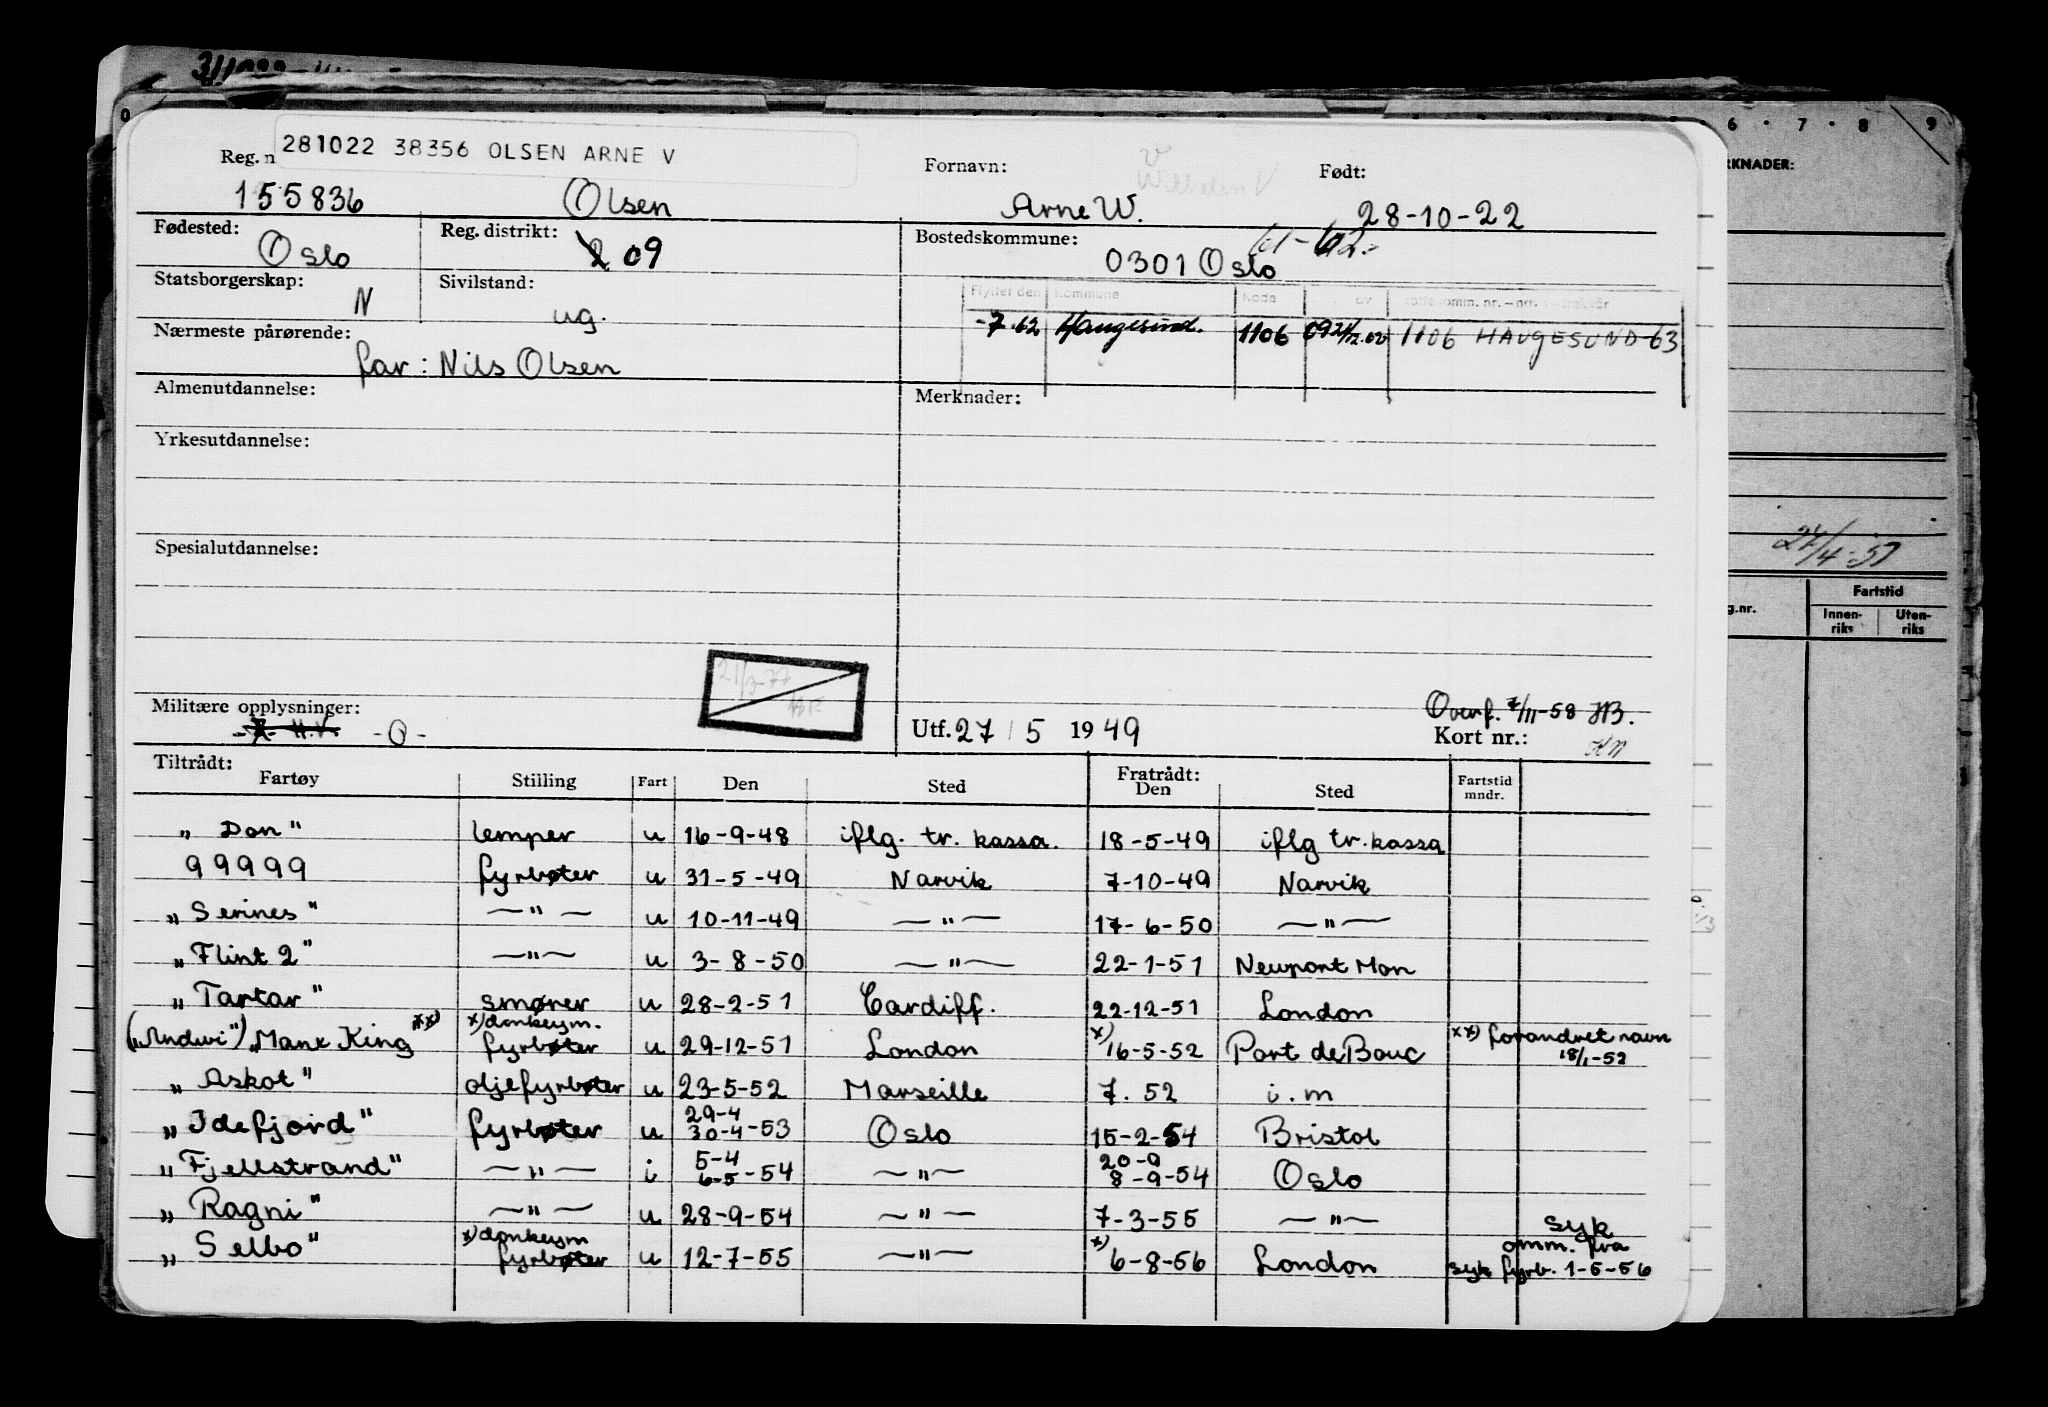 281022 38356 OLSEN ARNE V
Reg. n Fornavn: Født:
155836 Olsen Arne W. 28-10-22
Wilhelm V
Fødested: Oslo Reg. distrikt: 2 09 Bostedskommune: 0301 Oslo 61-62:
Statsborgerskap: N Sivilstand: ug.
Flyttet den Kommune Kode av
-7.62 Haugesund. 1106 09 21/12.62 1106 HAUGESUND 63
Nærmeste pårørende: far: Nils Olsen
Almenutdannelse: Merknader:
Yrkesutdannelse:
Spesialutdannelse:
21/3-77
Militære opplysninger: H.V. -O-
Utf. 27 / 5 1949
Overf. 7/11-58 HB.
Kort nr.:
Tiltrådt: Fratrådt:
Fartøy Stilling Fart Den Sted Den Sted Fartstid mndr.
"Don" lemper u 16-9-48 iflg. tr. kassa. 18-5-49 iflg tr. kassa
99999 fyrbøter u 31-5-49 Narvik 7-10-49 Narvik
"Serines" —"— u 10-11-49 —"— 17-6-50 —"—
"Flint 2" —"— u 3-8-50 —"— 22-1-51 Newport Mon
"Tartar" smører u 28-2-51 Cardiff. 22-12-51 London
("Andwi") "Manx King xx) x) donkeym. fyrbøter u 29-12-51 London x) 16-5-52 Port de Bouc xx) forandret navn 18/1-52
"Askot" oljefyrbøter u 23-5-52 Marseille 7.52 i.m
"Idefjord" fyrbøter u 29-4 30-4-53 Oslo 15-2-54 Bristol
"Fjellstrand" —"— i 5-4 6-5-54 —"— 20-9 8-9-54 Oslo
"Ragni" —"— u 28-9-54 —"— 7-3-55 —"— syk
"Selbo" x) donkeym fyrbøter u 12-7-55 —"— x) 6-8-56 London omm. fra syk fyrb. 1-5-56
6 7 8 9
RKNADER:
24/4-57
g.nr. Fartstid
Innen-riks Uten-riks